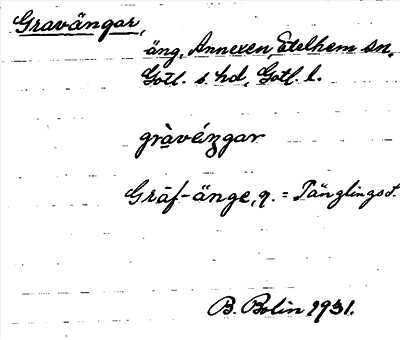 Gravängar,
äng, Annexen, Etelhem sn,
Gotl. s. hd, Gotl. l.
gràvéngar
Gräf-änge, q. = Tänglings d.
B. Bolin 1931.